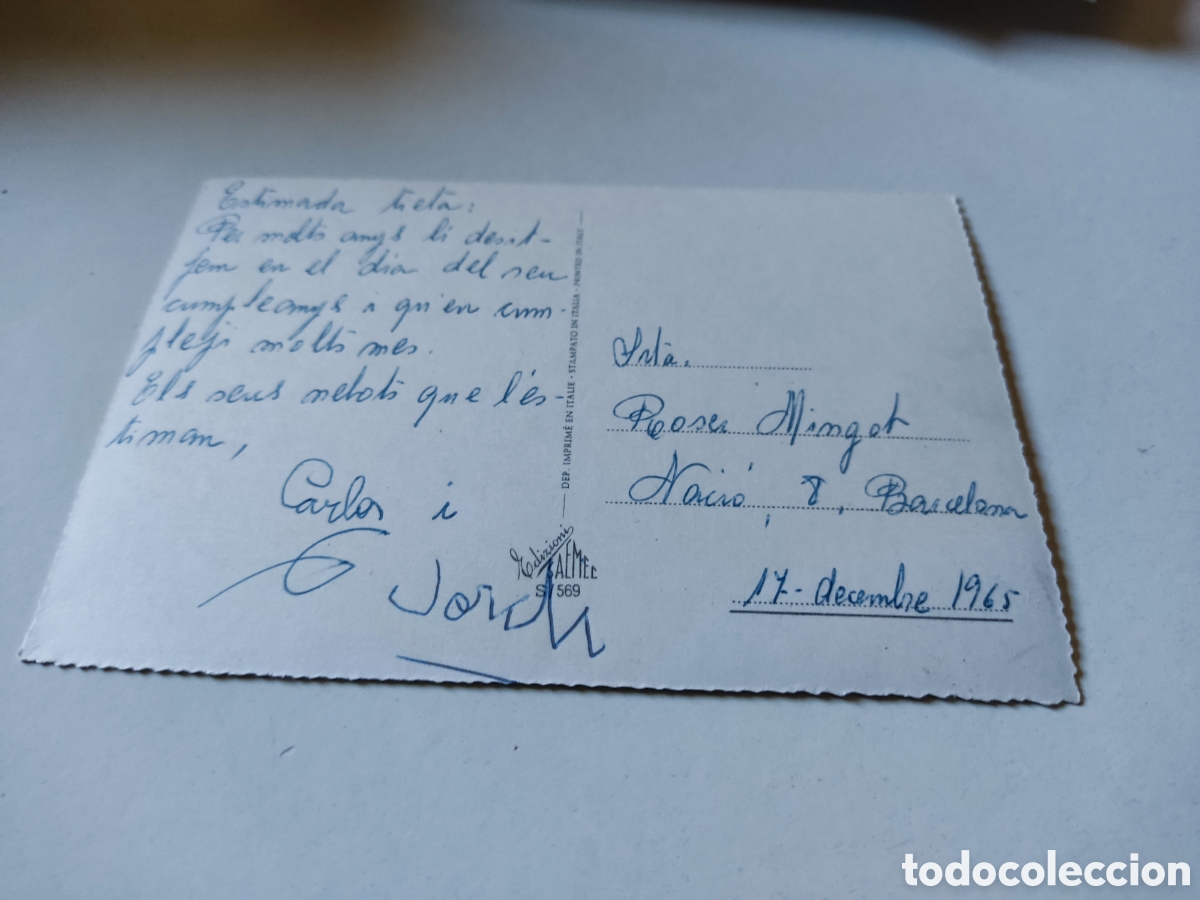 Estimada tieta:
Per molts anys li desit-
jem en el dia del seu
cumpleanys i qu'en cum-
pleji molts mes.
Els seus nebots que l'és-
timan,
Carlos i
Jordi
DEP. IMPRIMÉ EN ITALIE - STAMPATO IN ITALIA - PRINTED IN ITALY
Edizioni
SAEMEC
S/569
Srta.
Roser Mingot
Nació, 8, Barcelona
17-decembre 1965
todocoleccion